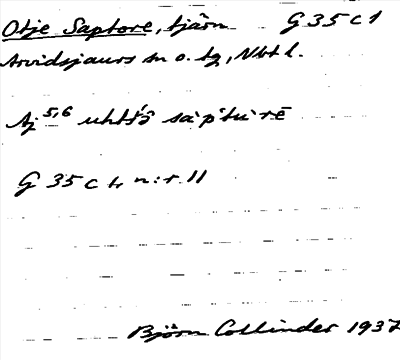 Otje Saptore, tjärn G 35 c 1
Arvidsjaurs sn o. tg, Nbt l.
Aj 5,6 sàp̀tùrē
G 35 c n:r 11
Björn Collinder 1937